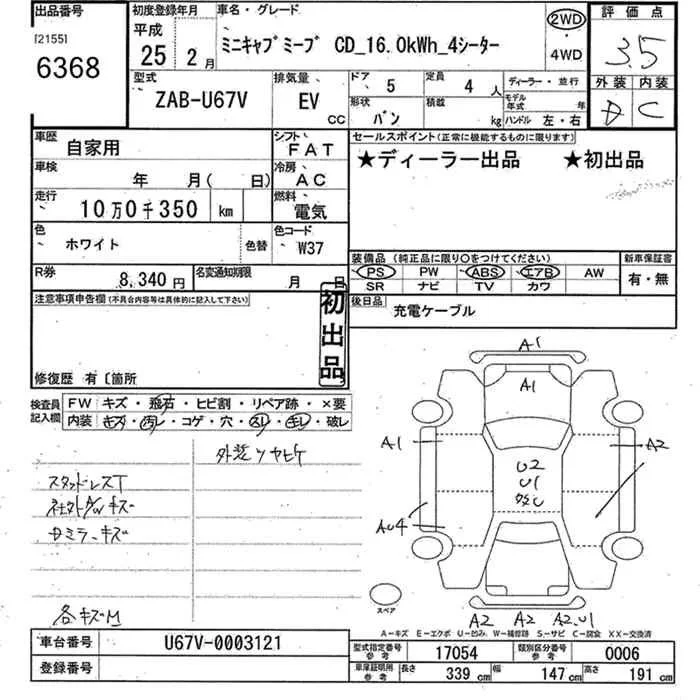 出品番号
[2155]
6368
初度登録年月
平成
25 2月
車名・グレード
ミニキャブミーブ CD_16.0kWh_4シーター
2WD
・
4WD
評価点
3.5
外装 内装
D C
型式
ZAB-U67V
排気量
EV
CC
ドア 5
定員 4人
形状 バン
積載 kg
ディーラー・並行
モデル年式 年
ハンドル 左・右
車歴
自家用
シフト
FAT
車検 年 月( 日)
冷房
AC
走行
10万0千350 km
燃料
電気
色
ホワイト
色替
色コード
W37
R券
8,340円
名変通知期限
月 日
セールスポイント(正常に機能するものに限ります)
★ディーラー出品 ★初出品
装備品(純正品に限り○をつけてください)
PS PW ABS エアB AW
SR ナビ TV カワ
新車保証書
有・無
後日品
充電ケーブル
注意事項申告欄(不具合内容等は具体的に記入して下さい)
初出品
修復歴 有〔箇所
検査員記入欄
FW キズ・飛石・ヒビ割・リペア跡・×要
内装 キズ・汚レ・コゲ・穴・スレ・キレ・破レ
外装ツヤヒケ
スタッドレスT
キズ
ミラーキズ
各キズM
A1
A1
A1
A2
U2
U1
A U4
A2 A2 A2.U1
スペア
A−キズ E−エクボ U−凹み W−補修跡 S−サビ C−腐食 XX−交換済
車台番号
U67V-0003121
登録番号
型式指定番号
参考
17054
類別区分番号
参考
0006
車庫証明用
参考
長さ 339 cm
幅 147 cm
高さ 191 cm